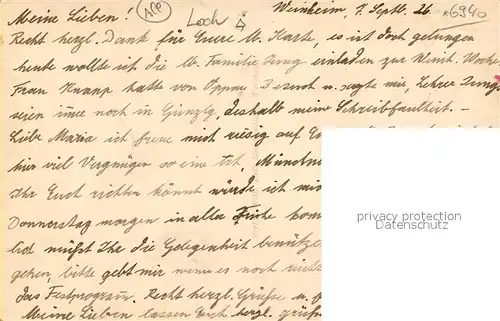 Meine Lieben! Weinheim, 7. Septb. 26
App
Loch
K6940
Recht herzl. Dank für Euere lb. Karte, es ist doch gelungen
heute wollte ich die lb. Familie Jung einladen zur Weinh. Woche.
Frau Knapp hatte von Besuch u. sagte mir, Lehrer Jungs
seien immer noch in deshalb meine Schreibfaulheit. –
Liebe Maria ich freue mich riesig auf
hier viel Vergnügen so eine
Ihr Euch richten könnt würde ich mich
Donnerstag morgen in aller Frühe
müßt Ihr die Gelegenheit
gehen, bitte gebt mir wenn es noch
das Festprogram. Recht herzl. Grüße u.
Meine Lieben lassen Euch herzl. grüßen
privacy protection
Datenschutz